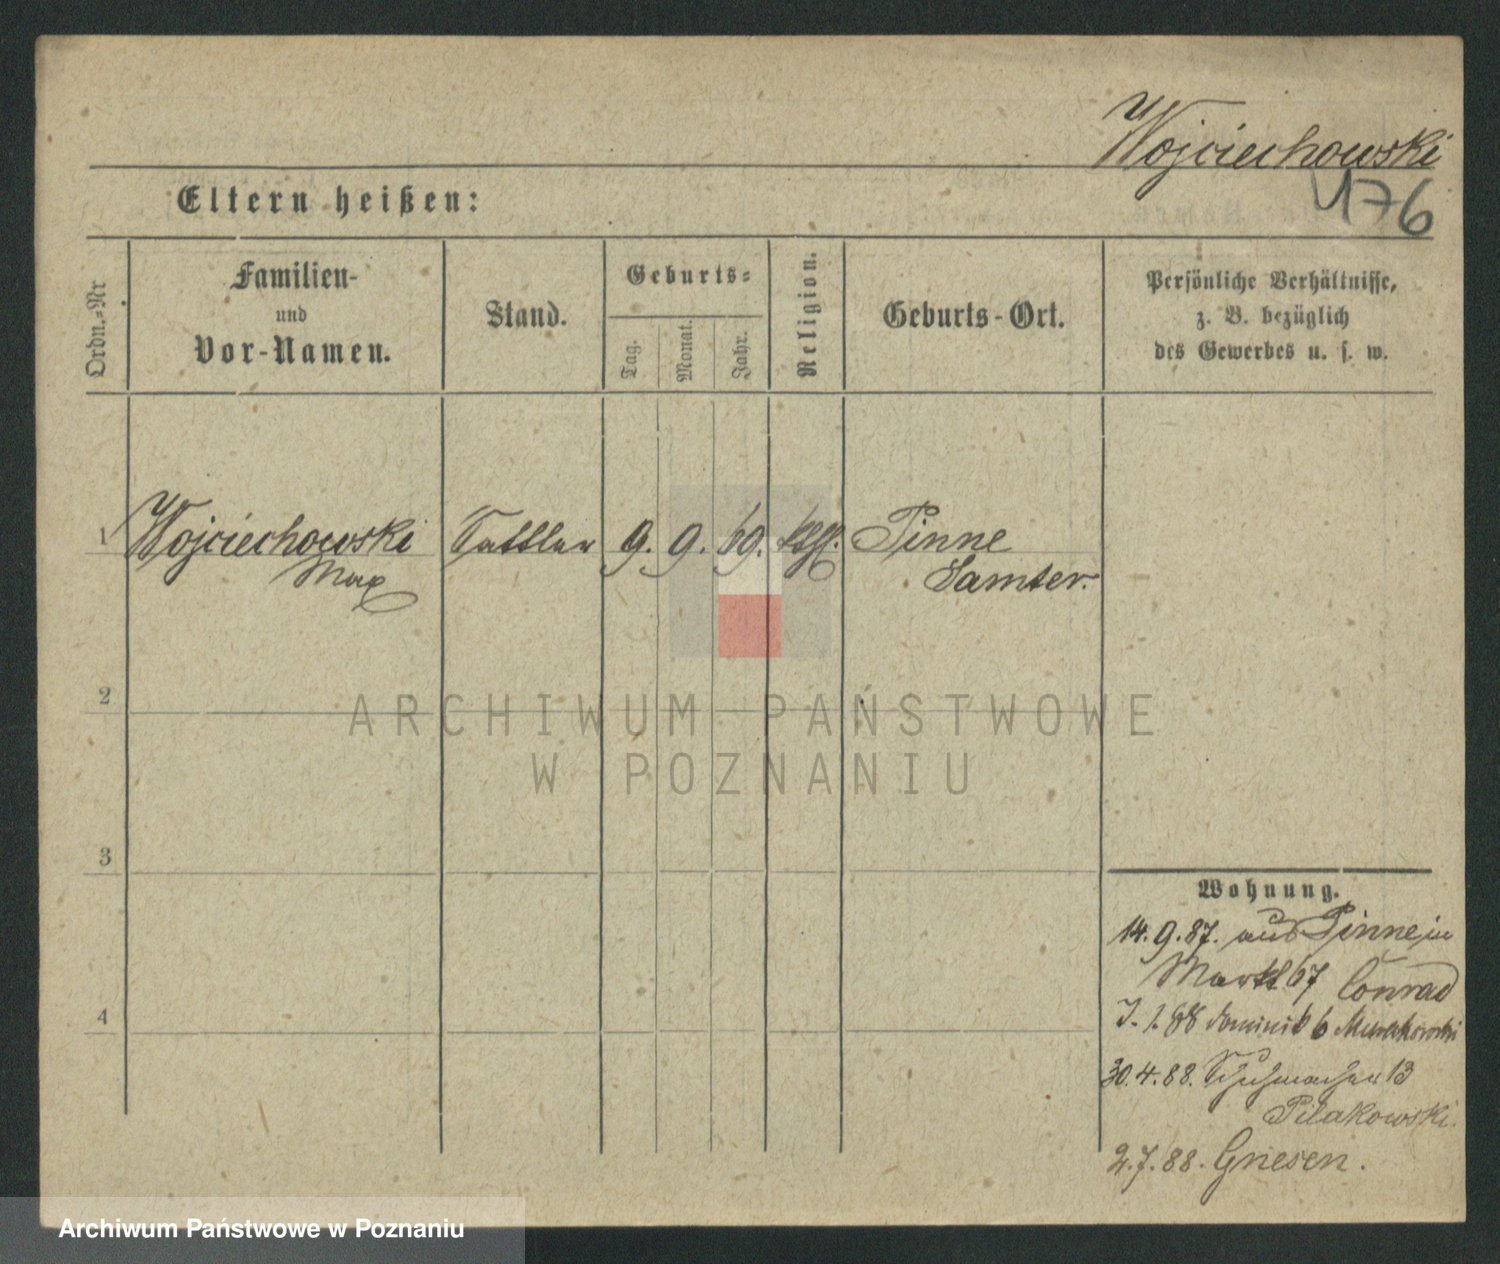 Wojciechowski
476
Eltern heißen:
Ordn.-Nr
Familien-
und
Vor-Namen.
Stand.
Geburts-
Tag.
Monat.
Jahr.
Religion.
Geburts-Ort.
Persönliche Verhältnisse,
z. B. bezüglich
des Gewerbes u. s. w.
1 Wojciechowski Sattler 9. 9. 69. kthl. Pinne
Max Samter.
2
ARCHIWUM PAŃSTWOWE
W POZNANIU
3
Wohnung.
14.9.87. aus Pinne in
Markt 67 Conrad
4
1.88 Dominik 6
30.4.88. Schuhmacher 13
Pilakowski.
2.7.88. Gnesen.
Archiwum Państwowe w Poznaniu